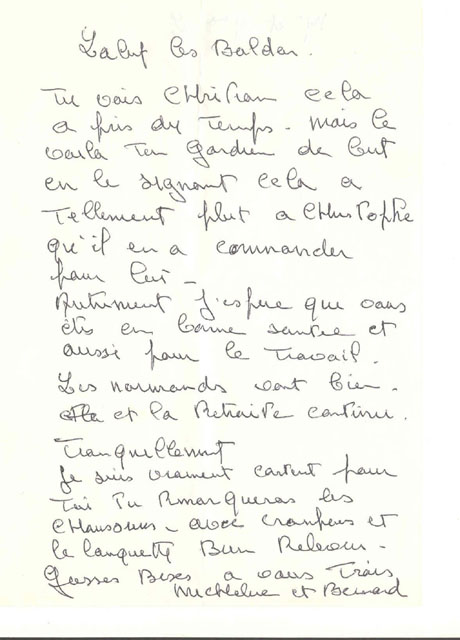 Salut les Baldar.
Tu vois CHRistian cela
a pris du Temps - mais le
voila Ton Gardien de but
en le signant cela a
Tellement plut a CHRisTopHe
qu'il en a commander
pour lui -
Autrement J'espère que vous
êtes en bonne santée et
aussi pour le Travail.
Les normands vont bien -
et la Retraite continu.
Tranquillement
Je suis vraiment content pour
Toi Tu Remarqueras les
CHaussures - avec crampons et
la languette Bien
Grosses Bises a vous Trois
Michleine et Bernard